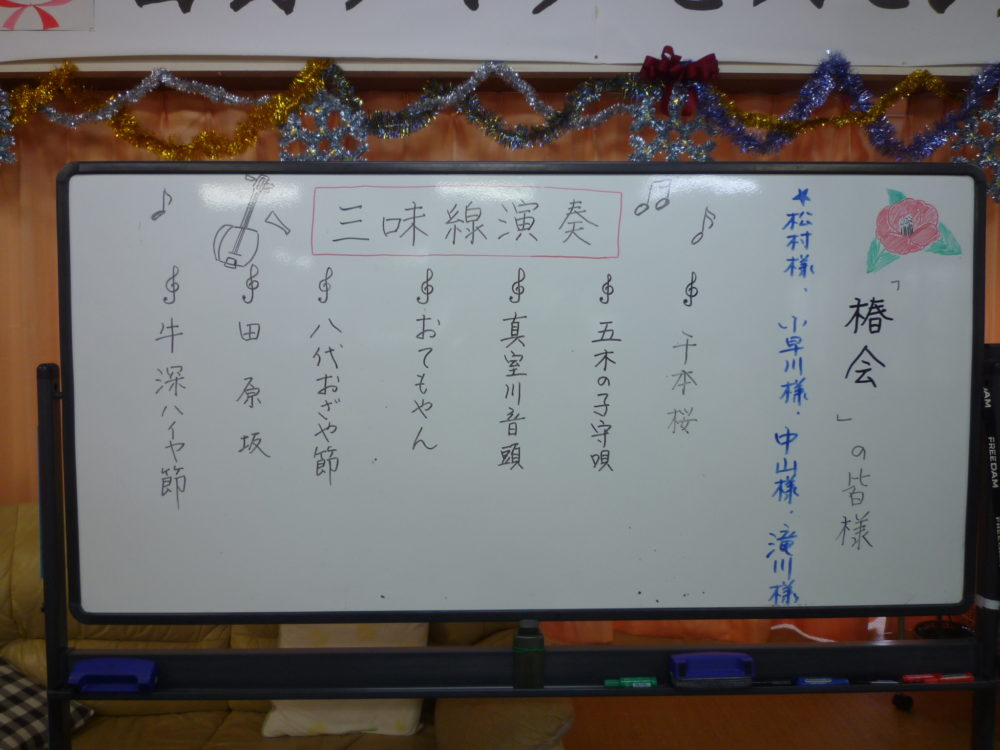 三味線演奏
「椿会」の皆様
★松村様、小早川様、中山様、滝川様
千本桜
五木の子守唄
真室川音頭
おてもやん
八代おざや節
田原坂
牛深ハイヤ節
FREEDAM